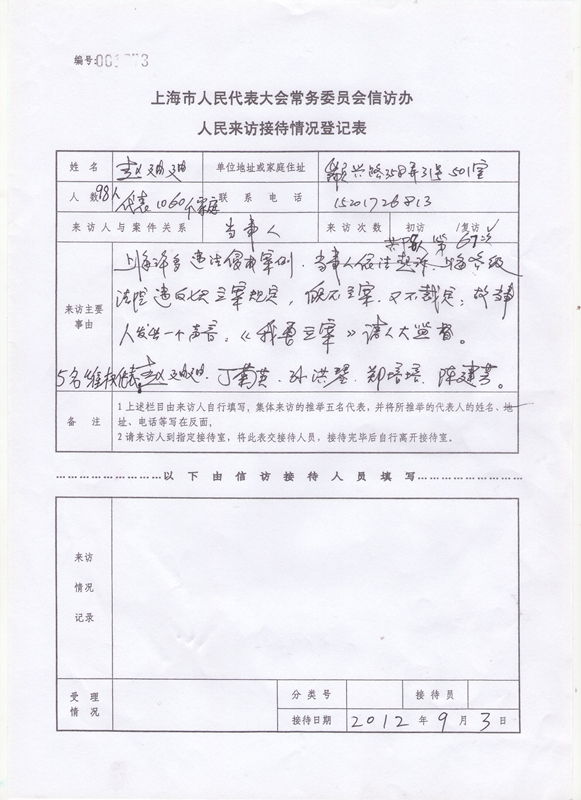 编号:
上海市人民代表大会常务委员会信访办
人民来访接待情况登记表
姓名 赵迪迪 单位地址或家庭住址 兴路358弄31号501室
人数 98人 代表1060个家庭 联系电话 15201726813
来访人与案件关系 当事人 来访次数 初访 /复访√
共 第67次
来访主要事由
上海许多违法侵权案例,当事人依法起诉,上海各级
法院违反七天立案规定,既不立案,又不裁定,故当事
人发出一个声音:《我要立案》请人大监督。
5名维权代表:赵迪迪、丁菊英、孙洪琴、郑培培、陈建芳。
备注
1上述栏目由来访人自行填写,集体来访的推举五名代表,并将所推举的代表人的姓名、地
址、电话等写在反面。
2请来访人到指定接待室,将此表交接待人员,接待完毕后自行离开接待室。
以下由信访接待人员填写
来访
情况
记录
受理情况 分类号 接待员
接待日期 2012年9月3日